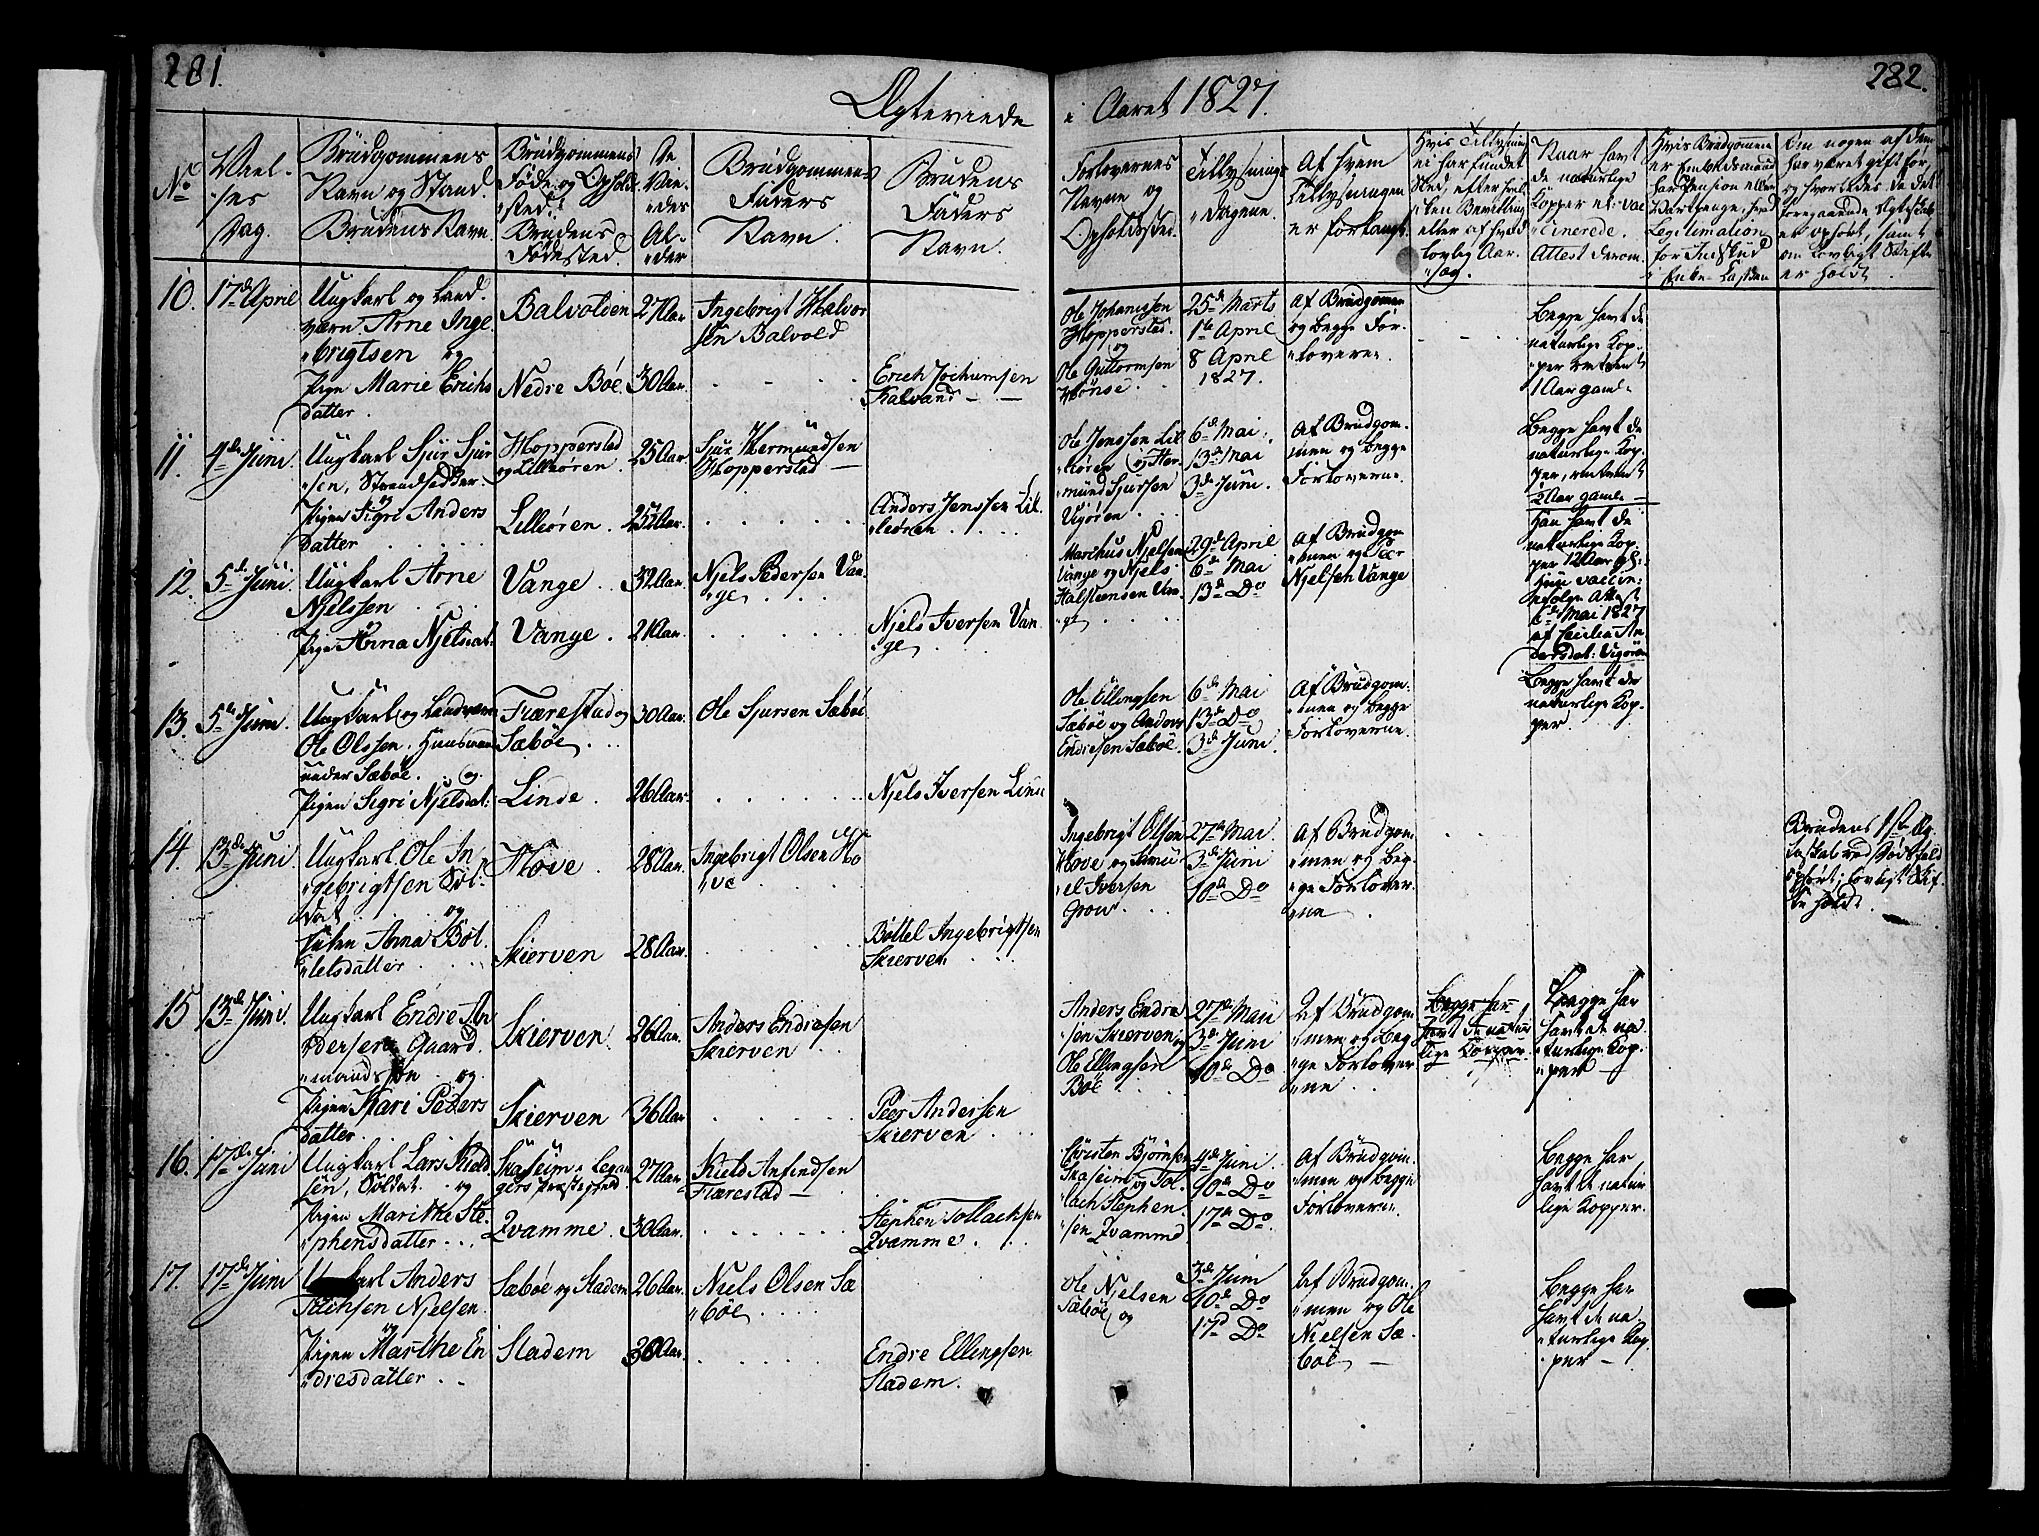 281.
282.
Ægteviede
i Aaret 1827.
No
Viel-
"ses
Dag.
Brudgommens
Navn og Stand.
Brudens Navn.
Brudgommens
Føde og Opholds
"sted.
Brudens
Fødested.
De
Vie-
"des
Al-
"der
Brudgommen"s
Faders
Navn.
Brudens
Faders
Navn.
Forlovernes
Navne og
Opholdssted.
Tillysnings
"Dagene.
Af hvem
Tillysningen
er forlangt.
Hvis Tillysning
ei har fundet
Sted, efter hvil
"ken Bevilling
eller af hvad
lovlig Aar.
"sag.
Naar havt
de naturlige
Kopper el: vac
"cinerede.
Attest derom.
Hvis Brudgommen
er Enkemand
har Pension eller
Vartpenge, hvad
Legitimation
for Indskud
i Enke-Cassen
Om nogen af dem
har været gift før,
og hvorledes de det
foregaaende Ægteskab
er ophørt, samt
om lovligt Skifte
er holdt.
10.
17de April
Ungkarl og Land.
værn Arne Inge
"brigtsen og
Pige Marie Erichs
datter.
Balvolden
Nedre Bøe.
27 Aar.
30 Aar.
Ingebrigt Halvor
sen Balvold
Erich Jochumsen
Kalvand - -
Ole Johannsen
Hopperstad.
og
Ole Guttormsen
Hønse.
25de Marts
1te April
8 April
1827.
Af Brudgommen
og begge For.
"lovere.
Begge havt de
naturlige Kop-
"per omtrent
1 Aar gaml.
11.
4de Juni
Ungkarl Sjur Sjur
"sen, Strandsidder.
og
Pigen Sigri Anders
datter
Hopperstad
og Lilleøren.
Lilleøren.
25 Aar.
25 Aar.
Sjur Hermundsen
Hopperstad -
Anders Jenssen Lil.
"leøren.
Ole Jenssen Lil
"leøren og Her
"mund Sjursen
Vigøren
6de Mai.
13de Mai
3de Juni.
Af Brudgom-
"men og begge
Forloverne.
Begge havt de
naturlige Kop.
per, omtrent
2 Aar gaml -
12.
5te Juni
Ungkarl Arne
Njelssen
Pige Anna Njelsdat.
Vange
Vange.
32 Aar.
21 Aar.
Njels Pedersen Van.
"ge
Njels Iversen Van
"ge
Marchus Njelsen
Vange og Njels
Halsteensen Van
"ge
29de April
6de Mai
13de Do
Af Brudgom
"men og Peer
Njelsen Vange
Han havt de
naturlige Kop.
per 12 Aar gl:
Hun vaccin:
ifølge Attest
6de Mai 1827
af Cecilia An
dersdat: Vigøren
13.
5te Juni.
Ungkarl og Landværn
Ole Olssen, Huusmand
under Sæbøe. og
Pigen Sigri Njelsdat:
Fiærestad og
Sæbøe
Linde.
30 Aar.
26 Aar.
Ole Sjursen Sæbøe
Njels Iversen Linde
Ole Ellingsen
Sæbøe og Anders
Endresen Sæbøe.
6de Mai
13de Do
3de Juni.
Af Brudgom:
"men og begge
Forloverne.
Begge havt de
naturlige Kop.
per.
14.
13de Juni
Ungkarl Ole In
"gebrigtsen Sol:
dat og
Enken Anna Bot
"telsdatter
Hove.
Skierven
28 Aar.
28 Aar.
Ingebrigt Olsen Ho
"ve
Bottel Ingebrigtsen
Skierven
Ingebrigt Olsen
Hove og Samu
"el Iversen
Grow.
27de Mai.
3de Juni
10de Do
Af Brudgom
"men og beg-
"ge Forlover-
"ne
Brudens 1ste Æg.
teskab ved Dødsfald
ophørt; lovligt Skif.
te holdt.
15
13de Juni.
Ungkarl Endre An
dersen Gaard.
"mandssøn og
Pigen Kari Peders
datter
Skierven
Skierven
26 Aar.
36 Aar.
Anders Endresen
Skierven
Peer Andersen
Skierven
Anders Endre
"sen Skierven og
Ole Ellingsen
Bøe
27de Mai
3de Juni
10de Do
Af Brudgom
"men og beg
"ge Forlover
"ne
Begge har
havt de natur
lige Kopper.
Begge har
havt de na
"turlige Kop.
"per
16.
17de Juni
Ungkarl Lars Kield
sen, Soldat og
Pigen Marithe Ste.
"phensdatter
Skaseim i Lekan
gers Præstegield
Qvamme.
27 Aar.
30 Aar.
Kield Anfindsen
Fiærestad -
Stephen Tollachsen
Qvamme.
Christen Bjørnsen
Skaseim og Tol.
"lach Stephen.
"sen Qvamme
3de Juni
10de Do
17de Do
Af Brudgom.
"men og begge
Forloverne.
Begge har
havt de natur
lige Kopper.
17.
17de Juni
Ungkarl Anders
Njelsen.
og
Pigen Marthe En
"dresdatter
Sæbøe og Stadem
Stadem
26 Aar.
30 Aar.
Niels Olsen Sæ
"bøe
Endre Ellingsen
Stadem.
Ole Njelsen
Sæbøe og
3de Juni
10de Do
17d Do
Af Brudgom.
"men og Ole
Nielsen Sæ.
bøe -
Begge har
havt de na
"turlige Kop.
"per -